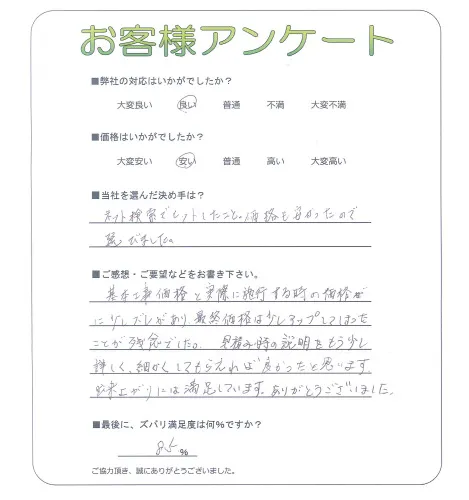 お客様アンケート
■弊社の対応はいかがでしたか？
大変良い 良い 普通 不満 大変不満
■価格はいかがでしたか？
大変安い 安い 普通 高い 大変高い
■当社を選んだ決め手は？
ネット検索でヒットしたこと。価格も安かったので
選びました。
■ご感想・ご要望などをお書き下さい。
基本工事価格と実際に施行する時の価格
に少しズレがあり、最終価格は少しアップしてしまった
ことが残念でした。見積り時の説明をもう少し
詳しく、細かくしてもらえれば良かったと思います
出来上がりには満足しています。ありがとうございました。
■最後に、ズバリ満足度は何％ですか？
85 ％
ご協力頂き、誠にありがとうございました。